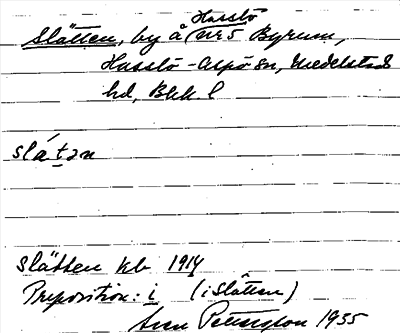 Hasslö
Slätten, by å nr 5 Byrum,
Hasslö-Aspö sn, Medelstads
hd, Blek. l
slátən
Slätten kb 1914
Preposition: i (i Slätten)
Pettersson 1955